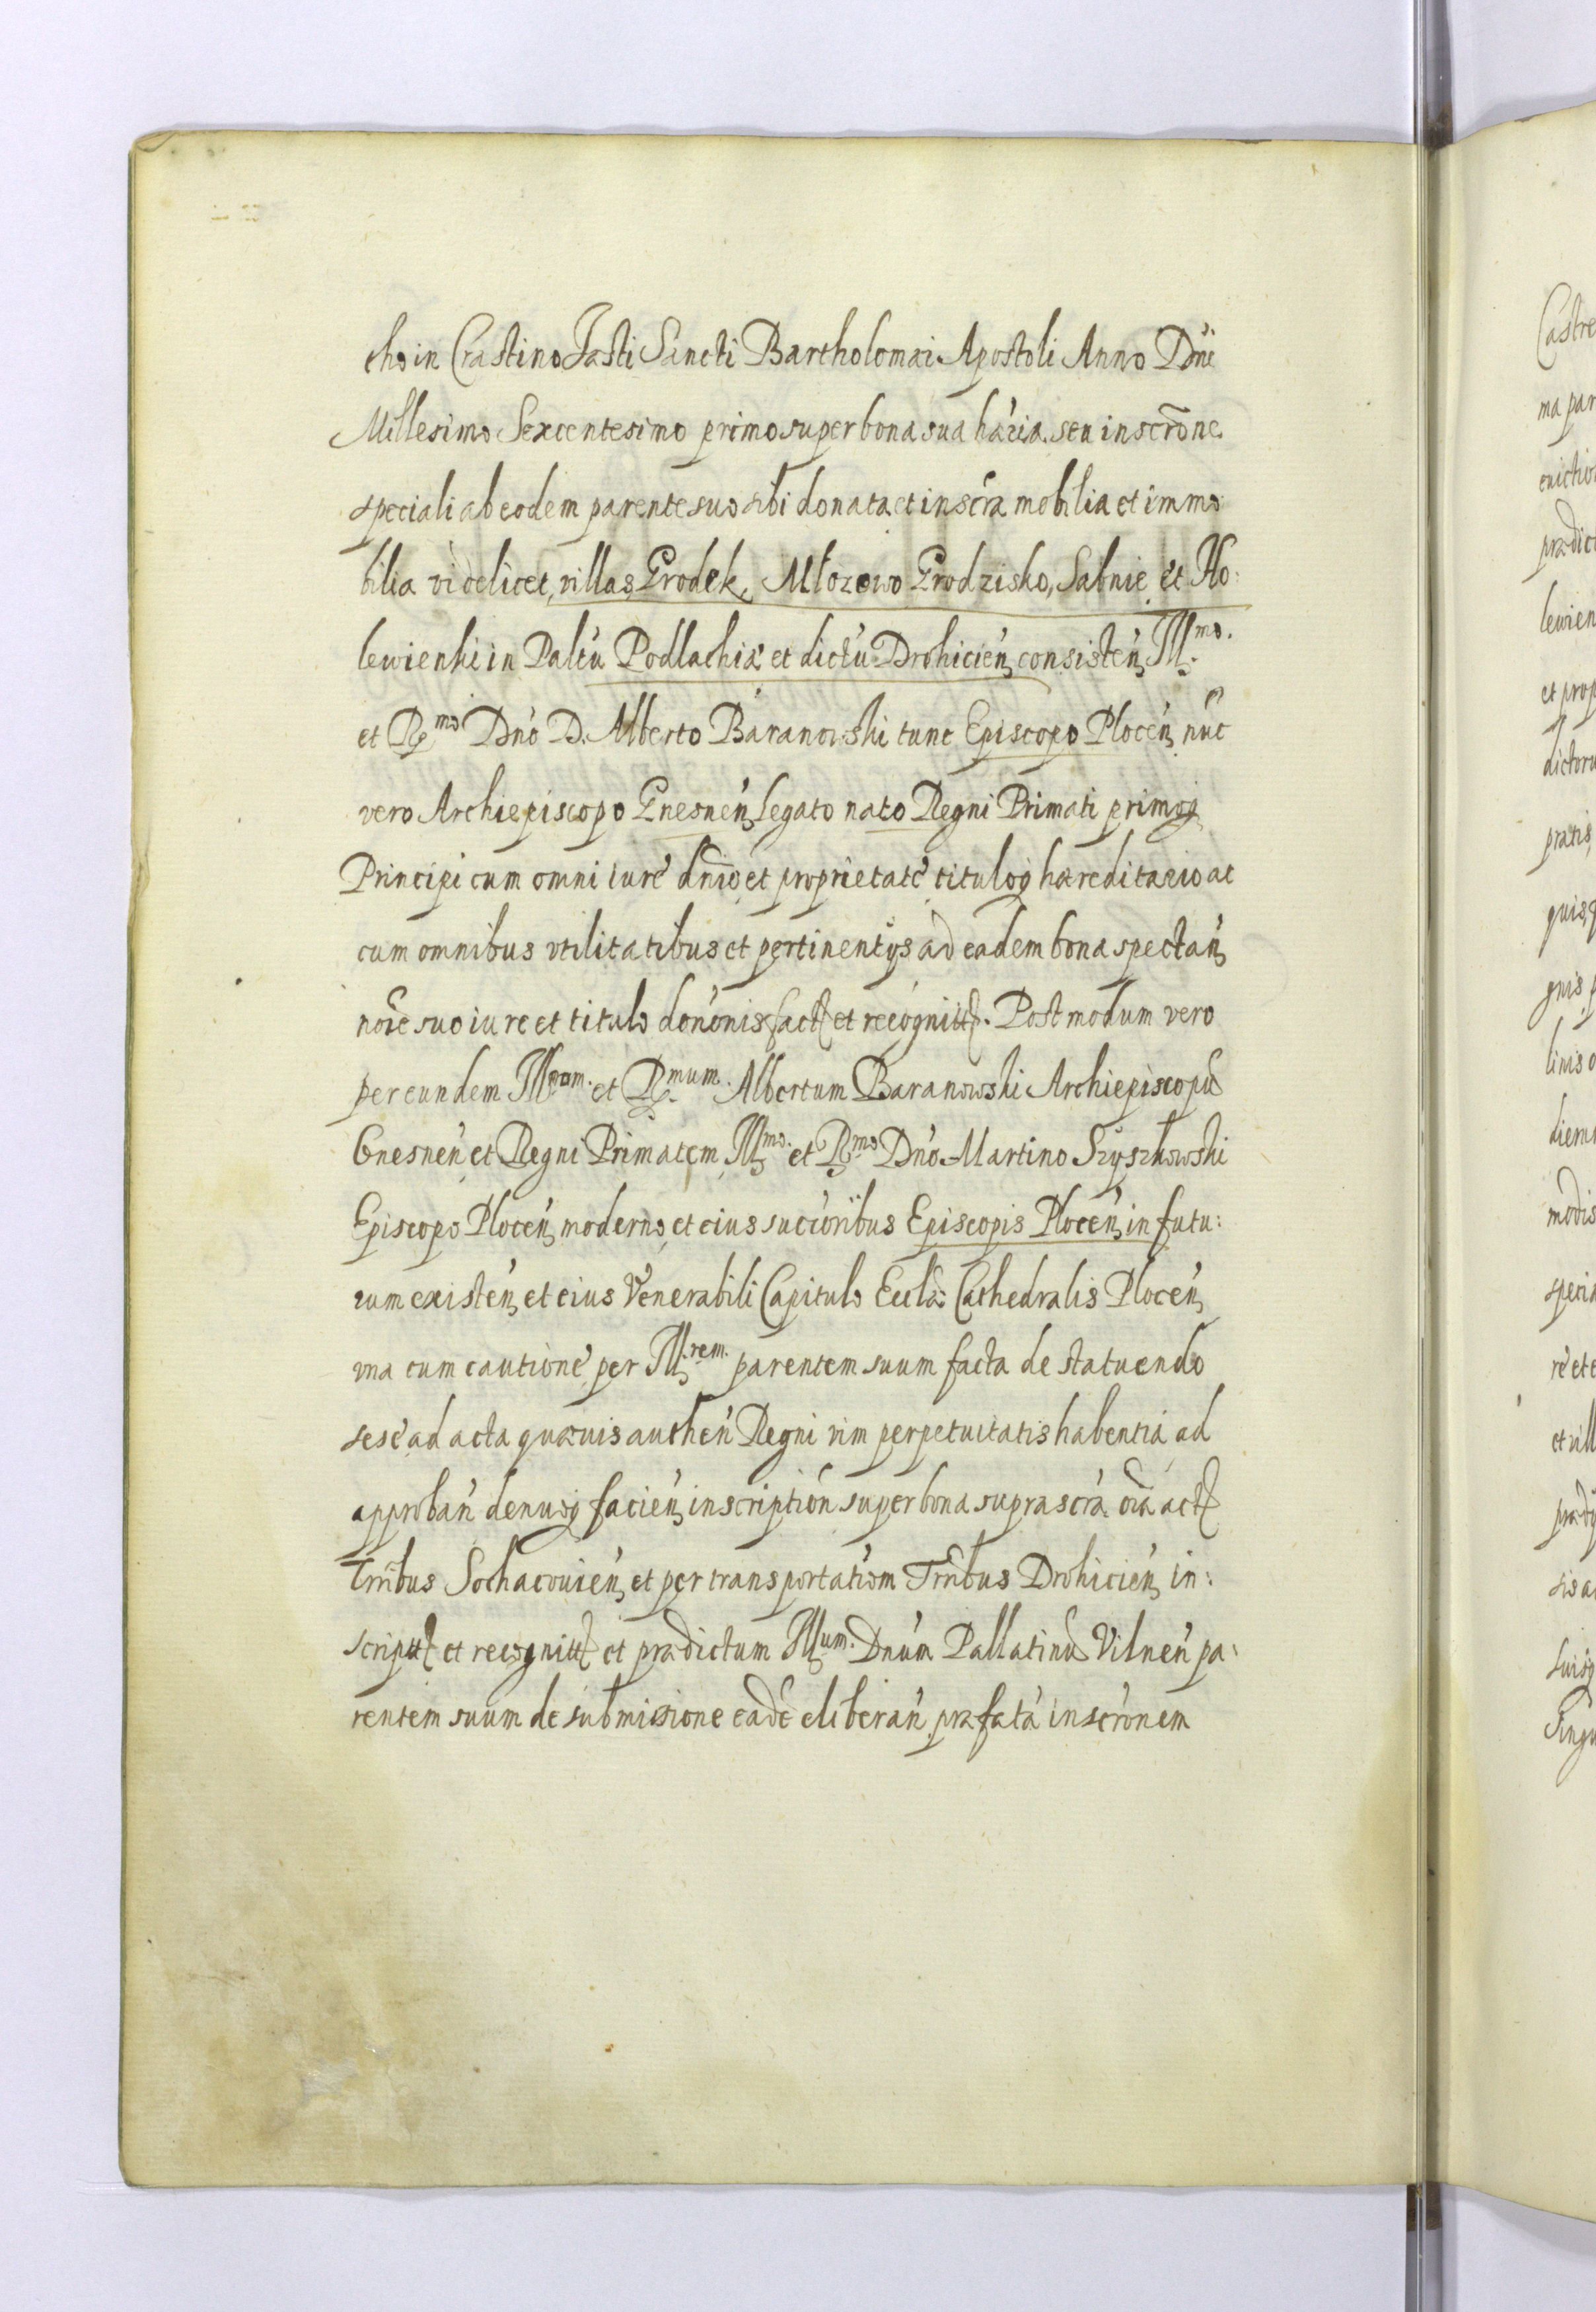 cho in Crastino Fasti Sancti Bartholomæi Apostoli Anno Dñi
Millesimo Sexcentesimo primo super bona sua hǽria seu inscrõne
speciali ab eodem parente suo sibi donata et inscra mobilia et immo:
bilia videlicet, villas Grodek, Młozowo Grodzisko, Sabnie et Ho:
lewienki in Paltu Podlachiæ et dictu Drohicień consisteń Illmo.
et Rmo Dno D. Alberto Baranowski tunc Episcopo Ploceń nuc
vero Archiepiscopo Gnesneń Legato nato Regni Primati primoq
Principi cum omni iure dnio et proprietate tituloq hæreditario ac
cum omnibus vtilitatibus et pertinentijs ad eadem bona spectań
noie suo iure et titulo dononis fact et recognitt. Post modum vero
per eundem Illmum. et Rmum. Albertum Baranowski Archiepiscopu
Gnesneń et Regni Primatem Illmo. et Rmo Dno Martino Szyszkowski
Episcopo Ploceń moderno, et eius succoribus Episcopis Ploceń in futu:
rum existeń et eius Venerabili Capitulo Eccla: Cathedralis Ploceń
vna cum cautione per Illrem. parentem suum facta de statuendo
sese ad acta quæuis autheń Regni vim perpetuitatis habentia ad
approbań denuoq facień inscription super bona suprascra oia act
Trribus Sochacouień et per transportatiom Trribus Drohicień in:
scriptt et recognitt et prædictum Illum. Dnum Pallatinu Vilneń pa:
rentem suum de submissione eade eliberań præfata inscronem
Castre
ma par
euictio
prædict
lewien
et prop
dictoru
pratis,
quis, q
gnis p
linis o
diem
modis
specia
re et e
et vill
prædi
sis a
suisq
Singu